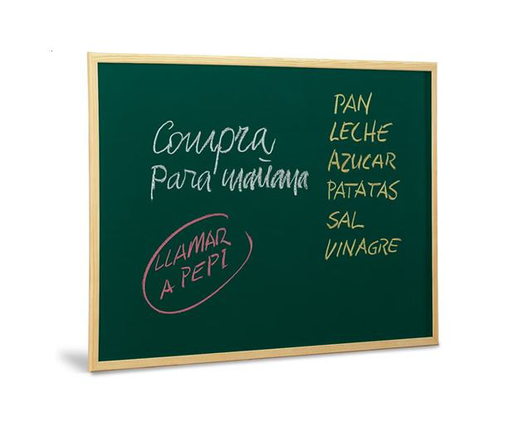 Compra
Para mañana
LLAMAR
A PEPI
PAN
LECHE
AZUCAR
PATATAS
SAL
VINAGRE